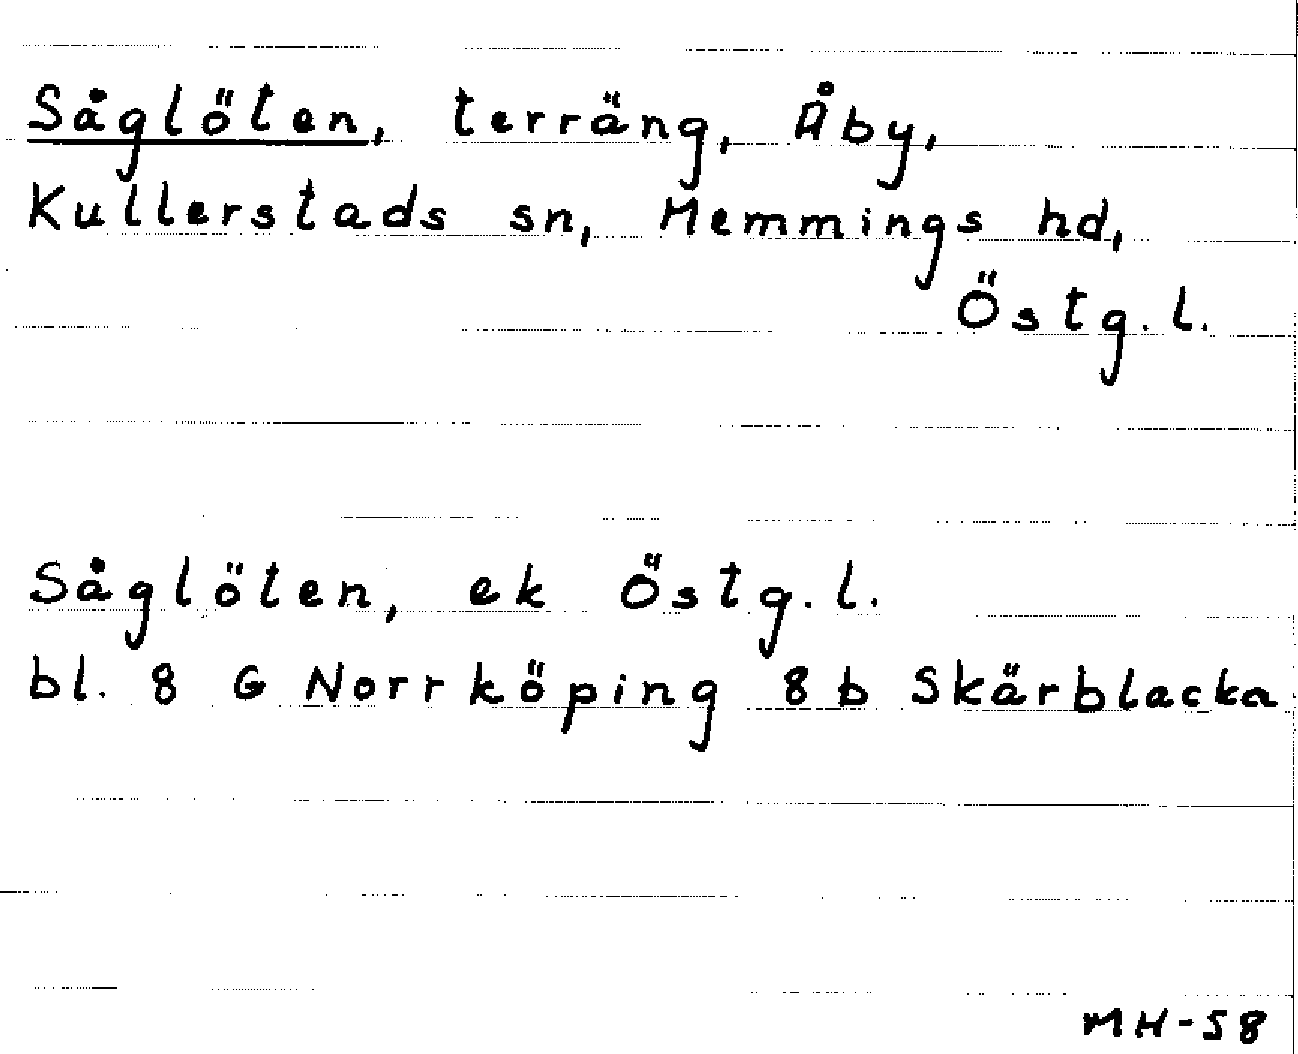 Såglöten, terräng, Åby,
Kullerstads sn, Memmings hd,
Östg.l.
Såglöten, ek Östg.l.
bl. 8 G Norrköping 8 b Skärblacka
MH-58